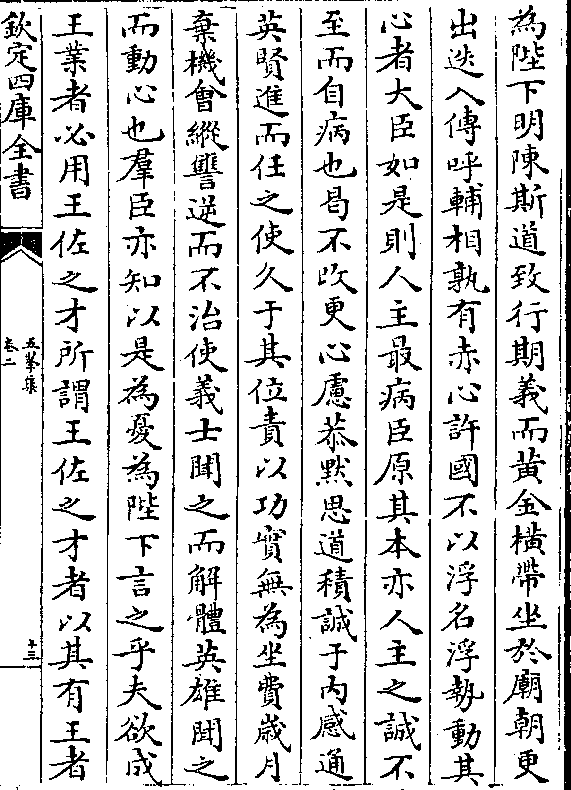 為陛下明陳斯道致行期義而黄金横帶坐於廟朝更
出迭入傳呼輔相孰有赤心許國不以浮名浮埶動其
心者大臣如是則人主最病臣原其本亦人主之誠不
至而自病也曷不改更心慮恭默思道積誠于内感通
英賢進而任之使久于其位責以功實無為坐費歳月
棄機會縱讐逆而不治使義士聞之而解體英雄聞之
而動心也羣臣亦知以是為憂為陛下言之乎夫欲成
王業者必用王佐之才所謂王佐之才者以其有王者
欽定四庫全書
五峯集
卷二
十三